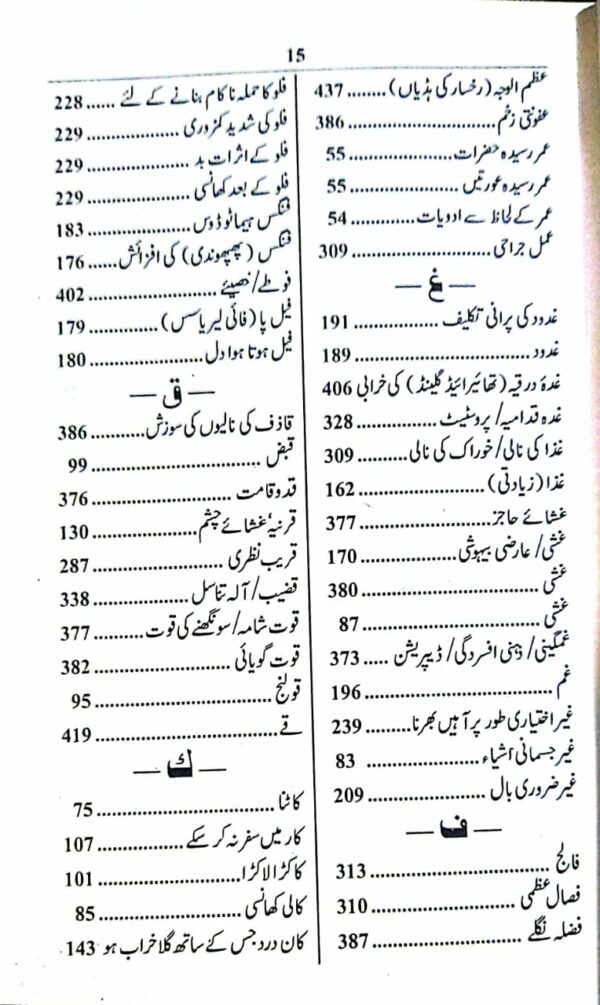 15
عظم الوجہ (رخسار کی ہڈیاں)........437
عفونتی زخم............................386
عمر رسیدہ حضرات....................55
عمر رسیدہ عورتیں...................55
عمر کے لحاظ سے ادویات..............54
عمل جراحی...........................309
— غ —
غدود کی پرانی تکلیف................191
غدود..................................189
غدۂ درقیہ (تھائیرائیڈ گلینڈ) کی خرابی 406
غدہ قدامیہ/ پروسٹیٹ................328
غذا کی نالی/خوراک کی نالی..........309
غذا (زیادتی)..........................162
غشائے حاجز..........................377
غشی/ عارضی بیہوشی................170
غشی..................................380
غشی..................................87
غمگینی/ ذہنی افسردگی/ ڈیپریشن .....373
غم....................................196
غیر اختیاری طور پر آہیں بھرنا.........239
غیر جسمانی اشیاء....................83
غیر ضروری بال.......................209
— ف —
فالج..................................313
فصال عظمی..........................310
فضلہ نگلے............................387
فلو کا حملہ ناکام بنانے کے لئے ......228
فلو کی شدید کمزوری..................229
فلو کے اثرات بد......................229
فلو کے بعد کھانسی...................229
فنگس ہیماٹوڈوس....................183
فنگس (پھپھوندی) کی افزائش......176
فوطے/خصیئے........................402
فیل پا (فائی لیریاسس).............179
فیل ہوتا ہوا دل.......................180
— ق —
قاذف کی نالیوں کی سوزش..........386
قبض..................................99
قد و قامت............................376
قرنیہ غشائے چشم....................130
قریب نظری...........................287
قضیب/ آلہ تناسل....................338
قوت شامہ/سونگھنے کی قوت........377
قوت گویائی...........................382
قولنج..................................95
قے....................................419
— ك —
کاٹنا..................................75
کار میں سفر نہ کر سکے...............107
کاکڑا لاکڑا............................101
کالی کھانسی..........................85
کان درد جس کے ساتھ گلا خراب ہو 143